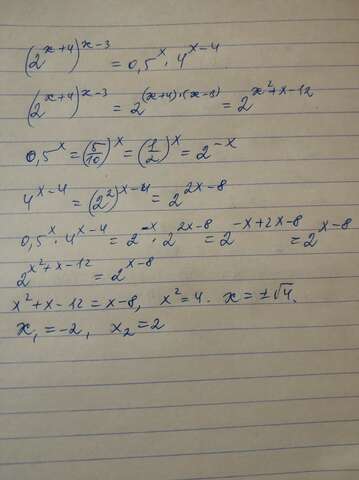 (2^{x+4})^{x-3} = 0,5^x · 4^{x-4}
(2^{x+4})^{x-3} = 2^{(x+4)·(x-3)} = 2^{x²+x-12}
0,5^x = (5/10)^x = (1/2)^x = 2^{-x}
4^{x-4} = (2²)^{x-4} = 2^{2x-8}
0,5^x · 4^{x-4} = 2^{-x} · 2^{2x-8} = 2^{-x+2x-8} = 2^{x-8}
2^{x²+x-12} = 2^{x-8}
x²+x-12 = x-8, x²=4. x = ±√4.
x₁ = -2, x₂ = 2